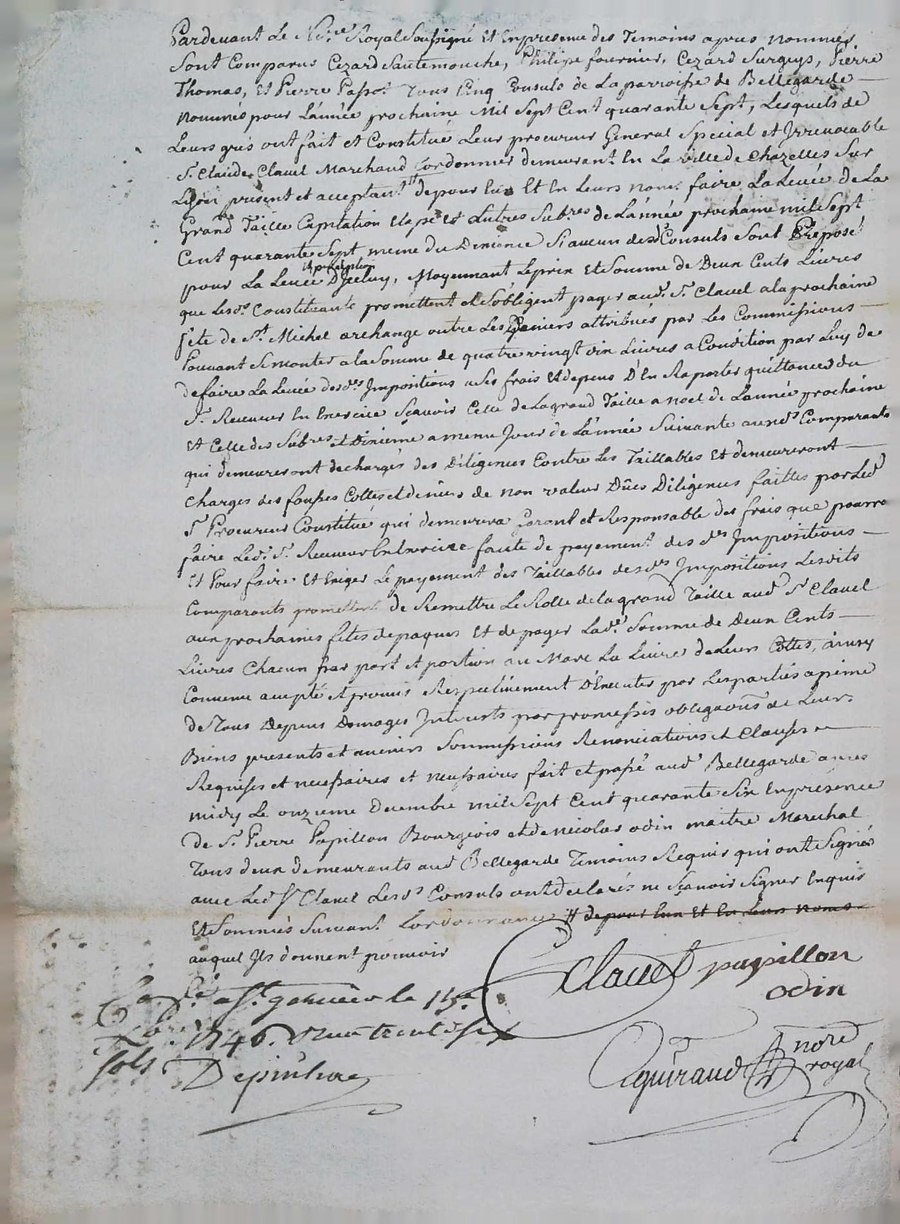 Pardevant Le No.re Royal Soussigné Et En presence des Temoins apres nommés
Sont Comparus Cezard Sautemouche, Philipe fournier, Cezard Surgeys, Pierre
Thomas, Et Pierre Passot Tous Cinq Consuls de La parroisse de Bellegarde
nommés pour L'année prochaine Mil Sept Cent quarante Sept, Lesquels de
Leurs grés ont fait et Constitué Leur procureur General Special et Irrevocable
S.r Claude Clavel Marchand Cordonnier demeurant En La ville de Chazelles Sur
Lyon present et acceptant # de pour Eux Et En Leurs noms faire La Levée de La
Grand Taille Capitation et Autres Subres de L'année prochaine mil Sept
Cent quarante Sept meme du Si aucun desd. Consuls Sont Preposé
pour La Levée D'jceluy, Moyennant Le prix Et Somme de Deux Cents Livres
que Lesd.s Constituants promettent et S'obligent payer aud.t S.r Clavel a la prochaine
fête de S.t Michel archange outre Les Deniers attribués par les Commissions
Pouvant Se monter a la Somme de quatre vingt dix Livres a Condition par Luy de
de faire La Levée desd.es Impositions a Ses frais Et depens D'En Raporter quittances du
S.r Receveur En Exercice Sçavoir Celle de La grand Taille a noel de L'année prochaine
Et Celle des Subres et Dixieme a meme Jour de L'année Suivante auxd.s Comparants
qui demeureront dechargés des Diligences Contre Les Taillables Et demeureront
Chargés des fausses Cottes et deniers de non valeur Dûes Diligences faittes par Led.
S.r Procureur Constitué qui demeurera Garant et Responsable des frais que pourra
faire Led. S.r Receveur En Exercice faute de payement des d.es Impositions
Et Pour faire Et Exiger Le payement des Taillables desd.es Impositions Lesdits
Comparants promettent de Remettre Le Rolle de La grand Taille aud. S.r Clavel
aux prochaines fêtes de paques Et de payer Lad.e Somme de Deux Cents
Livres Chacun par part Et portion au Marc La Livre de Leurs Cottes, ainsy
Convenu accepté et promis Respectivement D'Executer par Les parties a peine
de Tous Depens Domages Interests par promesses obligations de Leurs
Biens presents et avenirs Sommissions Renonciations et Clauses
Requises et necessaires et necessaires fait et passé aud. Bellegarde apres
midy Le onzieme Decembre mil Sept Cent quarante Six En presence
de S.r Pierre Papillon Bourgeois et de nicolas odin maitre Marechal
Tous deux demeurants aud. Bellegarde Temoins Requis qui ont Signés
avec Led. S.r Clavel Lesd.s Consuls ont declarés ne Sçavoir Signer Enquis
Et Sommés Suivant L'ordonnance # de pour Eux Et En Leurs noms
auquel Ils donnent pouvoir
Clavel papillon
odin
a S.t le 15e
1746.
sols
guiraud nore
royal